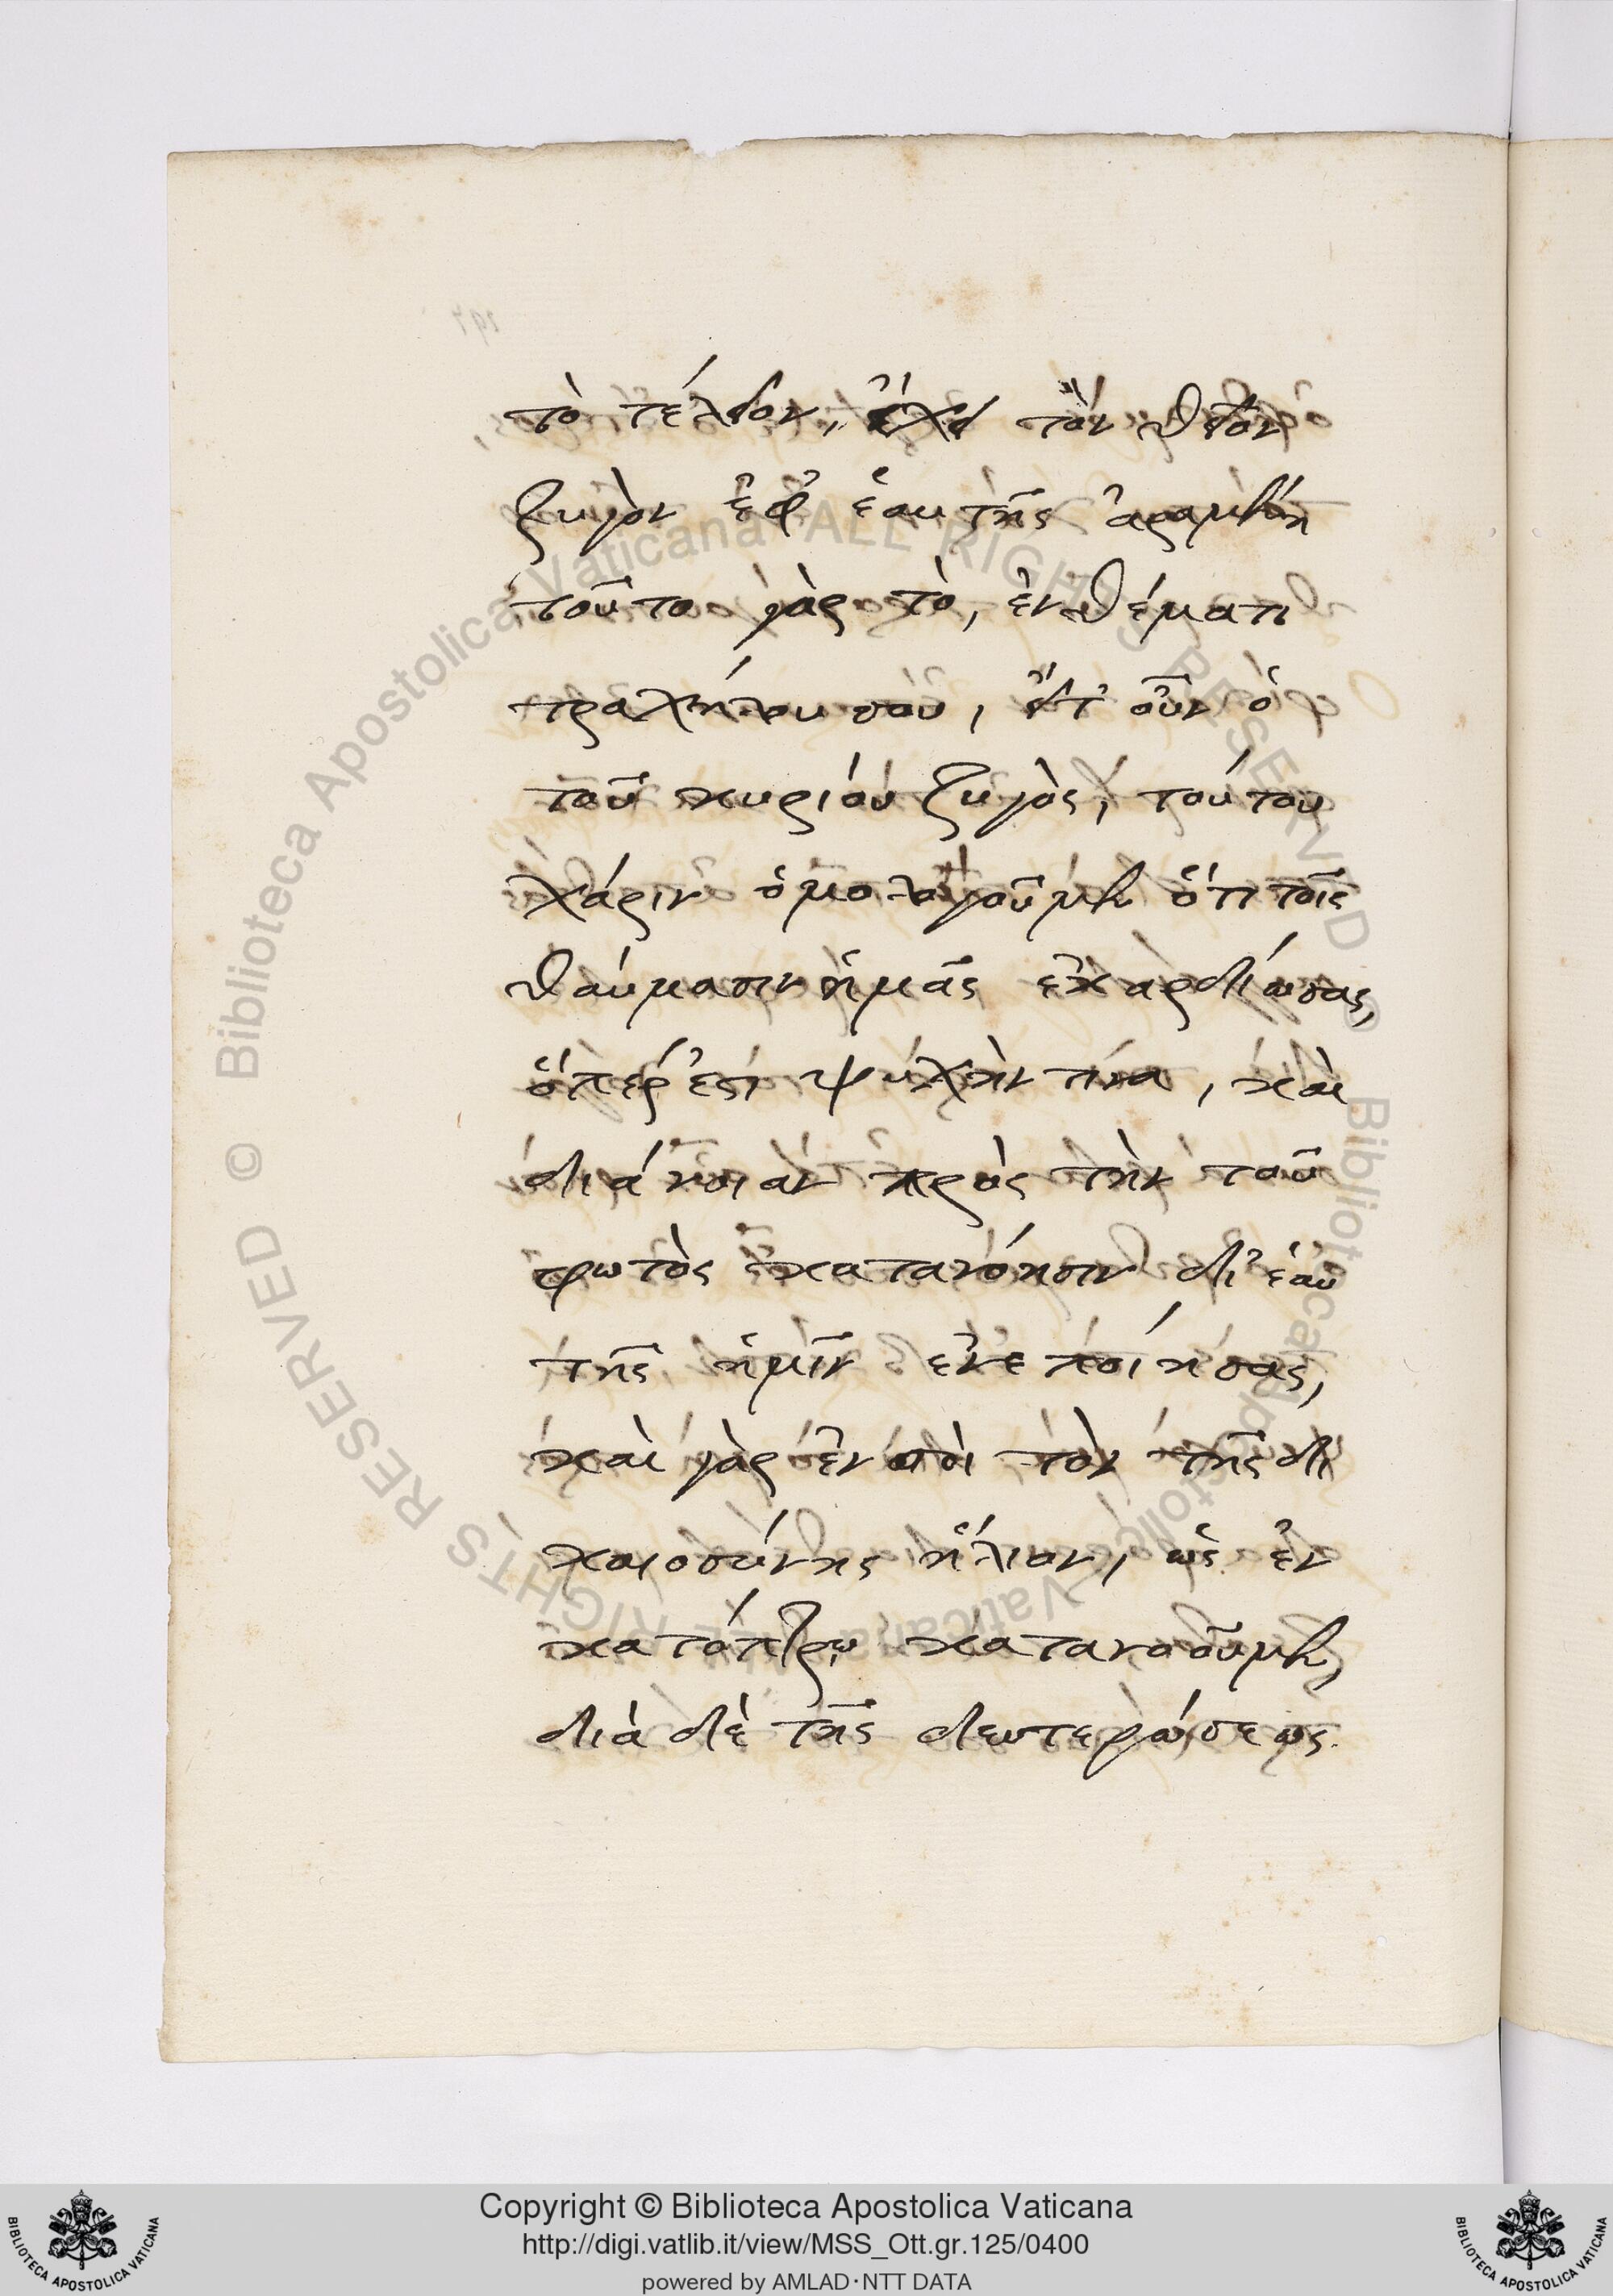 τὸ τέλειον, ἔχει τὸν θεῖον
ζυγὸν ἐφ ἑαυτῆς ἀραμένη
τοῦτο γὰρ τὸ, ἐνθέματι
τραχήλου σου, εἴτ οὖν ὁ
τοῦ κυρίου ζυγὸς, τούτου
χάριν ὁμολογοῦμεν ὅτι τοῖς
θαύμασιν ἡμᾶς ἐκαρδίωσας,
ὅπερ ἐστὶ ψυχήν τινα, καὶ
διάνοιαν πρὸς τὴν τοῦ
φωτὸς κατανόησιν δι ἑαυ
τῆς ἡμῖν ἐνεποίησας,
καὶ γὰρ ἐν σοὶ τὸν τῆς δι
καιοσύνης ἥλιον, ὡς ἐν
κατόπτρῳ κατανοοῦμεν,
διὰ δὲ τῆς δευτερώσεως
197
Copyright © Biblioteca Apostolica Vaticana
http://digi.vatlib.it/view/MSS_Ott.gr.125/0400
powered by AMLAD·NTT DATA
BIBLIOTECA APOSTOLICA VATICANA
BIBLIOTECA APOSTOLICA VATICANA
© Biblioteca Apostolica Vaticana ALL RIGHTS RESERVED
© Biblioteca Apostolica Vaticana ALL RIGHTS RESERVED